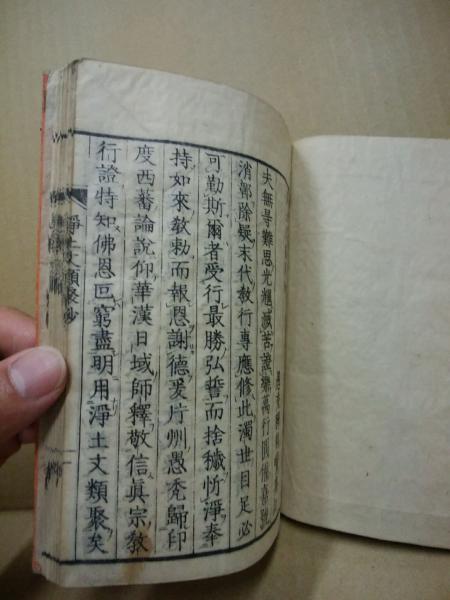 夫無㝵難思光耀滅苦證樂萬行圓備嘉號
消鄣除疑末代教行專應修此濁世目足必
可勤斯爾者受行最勝弘誓而捨穢忻淨奉
持如來教勅而報恩謝德爰片州愚禿歸印
度西蕃論說仰華漢日域師釋敬信眞宗教
行證特知佛恩叵窮盡明用淨土文類聚矣
淨土文類聚鈔